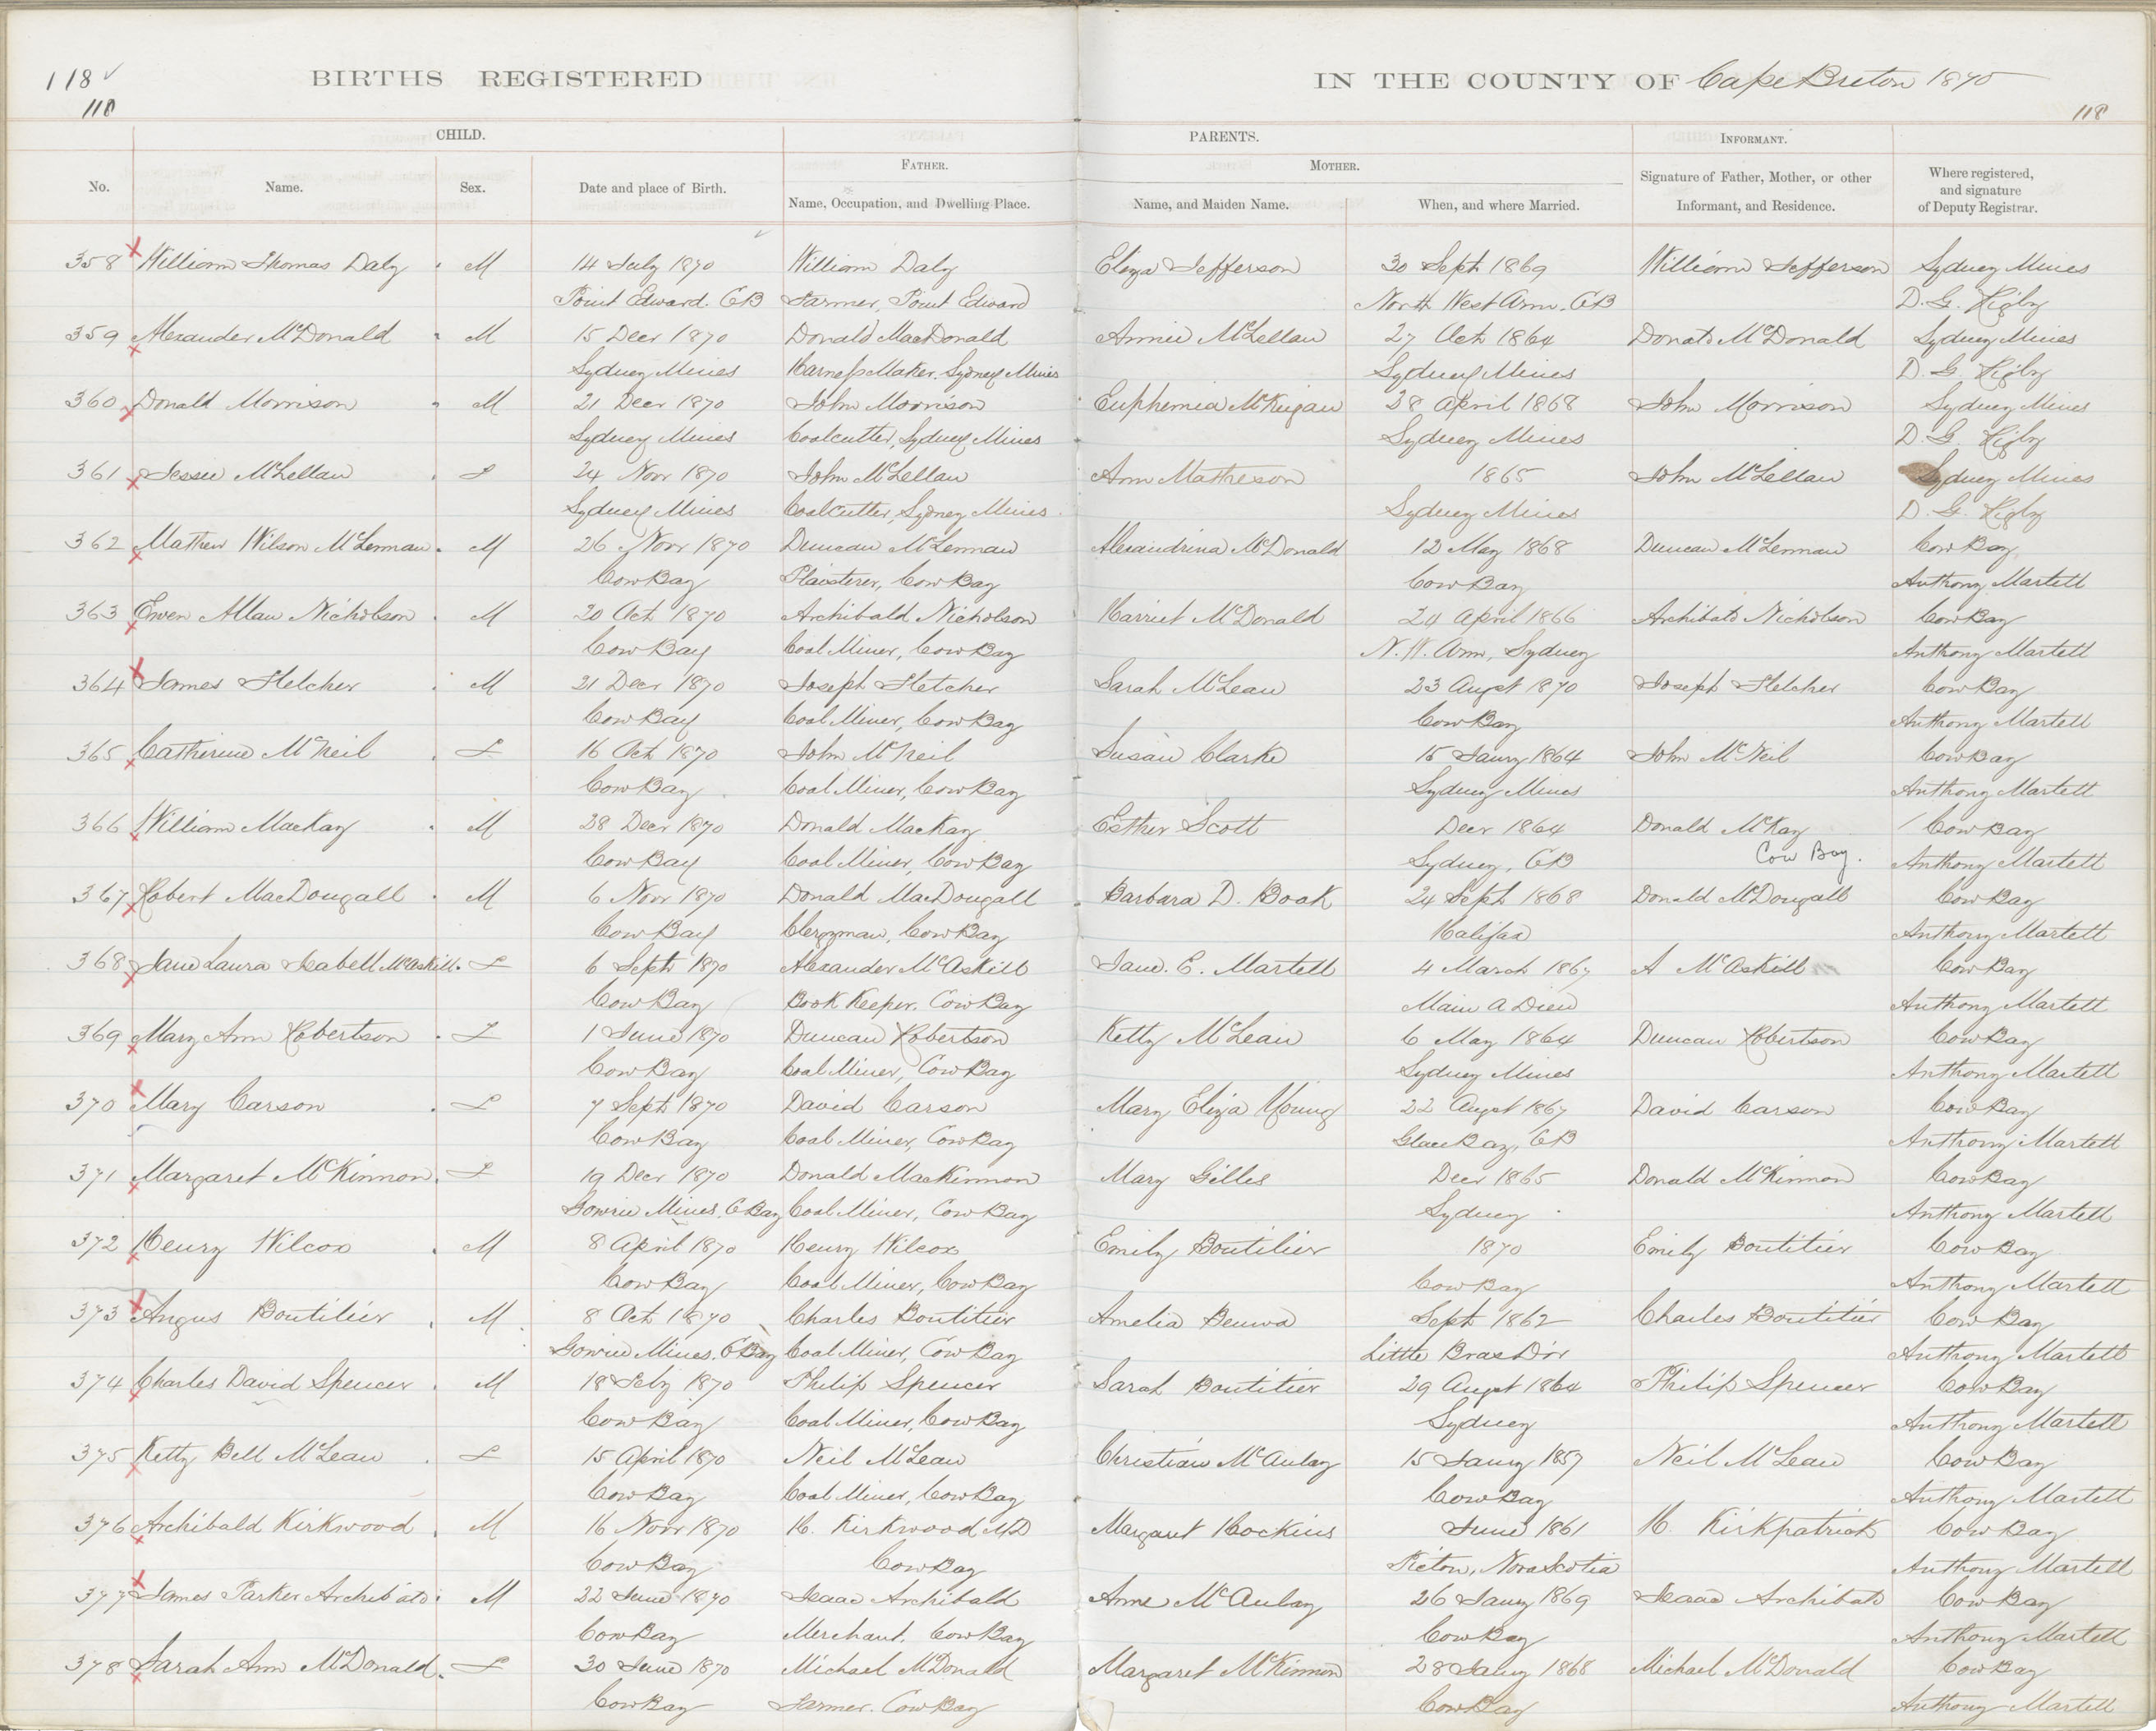 118 ✓
118
BIRTHS REGISTERED IN THE COUNTY OF Cape Breton 1870
118
CHILD. PARENTS. INFORMANT.
FATHER. MOTHER.
No. Name. Sex. Date and place of Birth. Name, Occupation, and Dwelling Place. Name, and Maiden Name. When, and where Married. Signature of Father, Mother, or other Informant, and Residence. Where registered, and signature of Deputy Registrar.
358 William Thomas Daly M 14 July 1870 William Daly Eliza Jefferson 30 Sept 1869 William Jefferson Sydney Mines
Point Edward. CB Farmer, Point Edward North West Arm. CB D. G. Rigby
359 Alexander McDonald M 15 Decr 1870 Donald MacDonald Annie McLellan 27 Oct 1864 Donald McDonald Sydney Mines
Sydney Mines Harness Maker. Sydney Mines Sydney Mines D. G. Rigby
360 Donald Morrison M 21 Decr 1870 John Morrison Euphemia McKeigan 28 April 1868 John Morrison Sydney Mines
Sydney Mines Coalcutter, Sydney Mines Sydney Mines D. G. Rigby
361 Jessie McLellan F 24 Novr 1870 John McLellan Ann Matheson 1865 John McLellan Sydney Mines
Sydney Mines Coalcutter, Sydney Mines Sydney Mines D. G. Rigby
362 Mathew Wilson McLennan M 26 Novr 1870 Duncan McLennan Alexandrina McDonald 12 May 1868 Duncan McLennan Cow Bay
Cow Bay Plaisterer, Cow Bay Cow Bay Anthony Martell
363 Ewen Allan Nicholson M 20 Oct 1870 Archibald Nicholson Harriet McDonald 24 April 1866 Archibald Nicholson Cow Bay
Cow Bay Coal Miner, Cow Bay N. W. Arm, Sydney Anthony Martell
364 James Fletcher M 21 Decr 1870 Joseph Fletcher Sarah McLean 23 Augst 1870 Joseph Fletcher Cow Bay
Cow Bay Coal Miner, Cow Bay Cow Bay Anthony Martell
365 Catherine McNeil F 16 Oct 1870 John McNeil Susan Clarke 15 Jany 1864 John McNeil Cow Bay
Cow Bay Coal Miner, Cow Bay Sydney Mines Anthony Martell
366 William MacKay M 28 Decr 1870 Donald MacKay Esther Scott Decr 1864 Donald McKay Cow Bay
Cow Bay Coal Miner, Cow Bay Sydney, CB Cow Bay. Anthony Martell
367 Robert MacDougall M 6 Novr 1870 Donald MacDougall Barbara D. Book 24 Sept 1868 Donald McDougall Cow Bay
Cow Bay Clergyman, Cow Bay Halifax Anthony Martell
368 Jane Laura Isabell McAskill F 6 Sept 1870 Alexander McAskill Jane. E. Martell 4 March 1867 A McAskill Cow Bay
Cow Bay Book Keeper. Cow Bay Main A Dieu Anthony Martell
369 Mary Ann Robertson F 1 June 1870 Duncan Robertson Ketty McLean 6 May 1864 Duncan Robertson Cow Bay
Cow Bay Coal Miner, Cow Bay Sydney Mines Anthony Martell
370 Mary Carson F 7 Sept 1870 David Carson Mary Eliza Young 22 Augst 1867 David Carson Cow Bay
Cow Bay Coal Miner, Cow Bay Glace Bay, CB Anthony Martell
371 Margaret McKinnon F 19 Decr 1870 Donald MacKinnon Mary Gilles Decr 1865 Donald McKinnon Cow Bay
Gowrie Mines. C Bay Coal Miner, Cow Bay Sydney Anthony Martell
372 Henry Wilcox M 8 April 1870 Henry Wilcox Emily Boutilier 1870 Emily Boutilier Cow Bay
Cow Bay Coal Miner, Cow Bay Cow Bay Anthony Martell
373 Angus Boutilier M 8 Oct 1870 Charles Boutilier Amelia Sept 1862 Charles Boutilier Cow Bay
Gowrie Mines. C Bay Coal Miner, Cow Bay Little Bras D'or Anthony Martell
374 Charles David Spencer M 18 Feby 1870 Philip Spencer Sarah Boutilier 29 Augst 1864 Philip Spencer Cow Bay
Cow Bay Coal Miner, Cow Bay Sydney Anthony Martell
375 Ketty Bell McLean F 15 April 1870 Neil McLean Christian McAulay 15 Jany 1857 Neil McLean Cow Bay
Cow Bay Coal Miner, Cow Bay Cow Bay Anthony Martell
376 Archibald Kirkwood M 16 Novr 1870 H. Kirkwood MD Margaret Hockins June 1861 H. Kirkpatrick Cow Bay
Cow Bay Cow Bay Picton, Nova Scotia Anthony Martell
377 James Parker Archibald M 22 June 1870 Isaac Archibald Anne McAulay 26 Jany 1869 Isaac Archibald Cow Bay
Cow Bay Merchant. Cow Bay Cow Bay Anthony Martell
378 Sarah Ann McDonald F 30 June 1870 Michael McDonald Margaret McKinnon 28 Jany 1868 Michael McDonald Cow Bay
Cow Bay Farmer. Cow Bay Cow Bay Anthony Martell